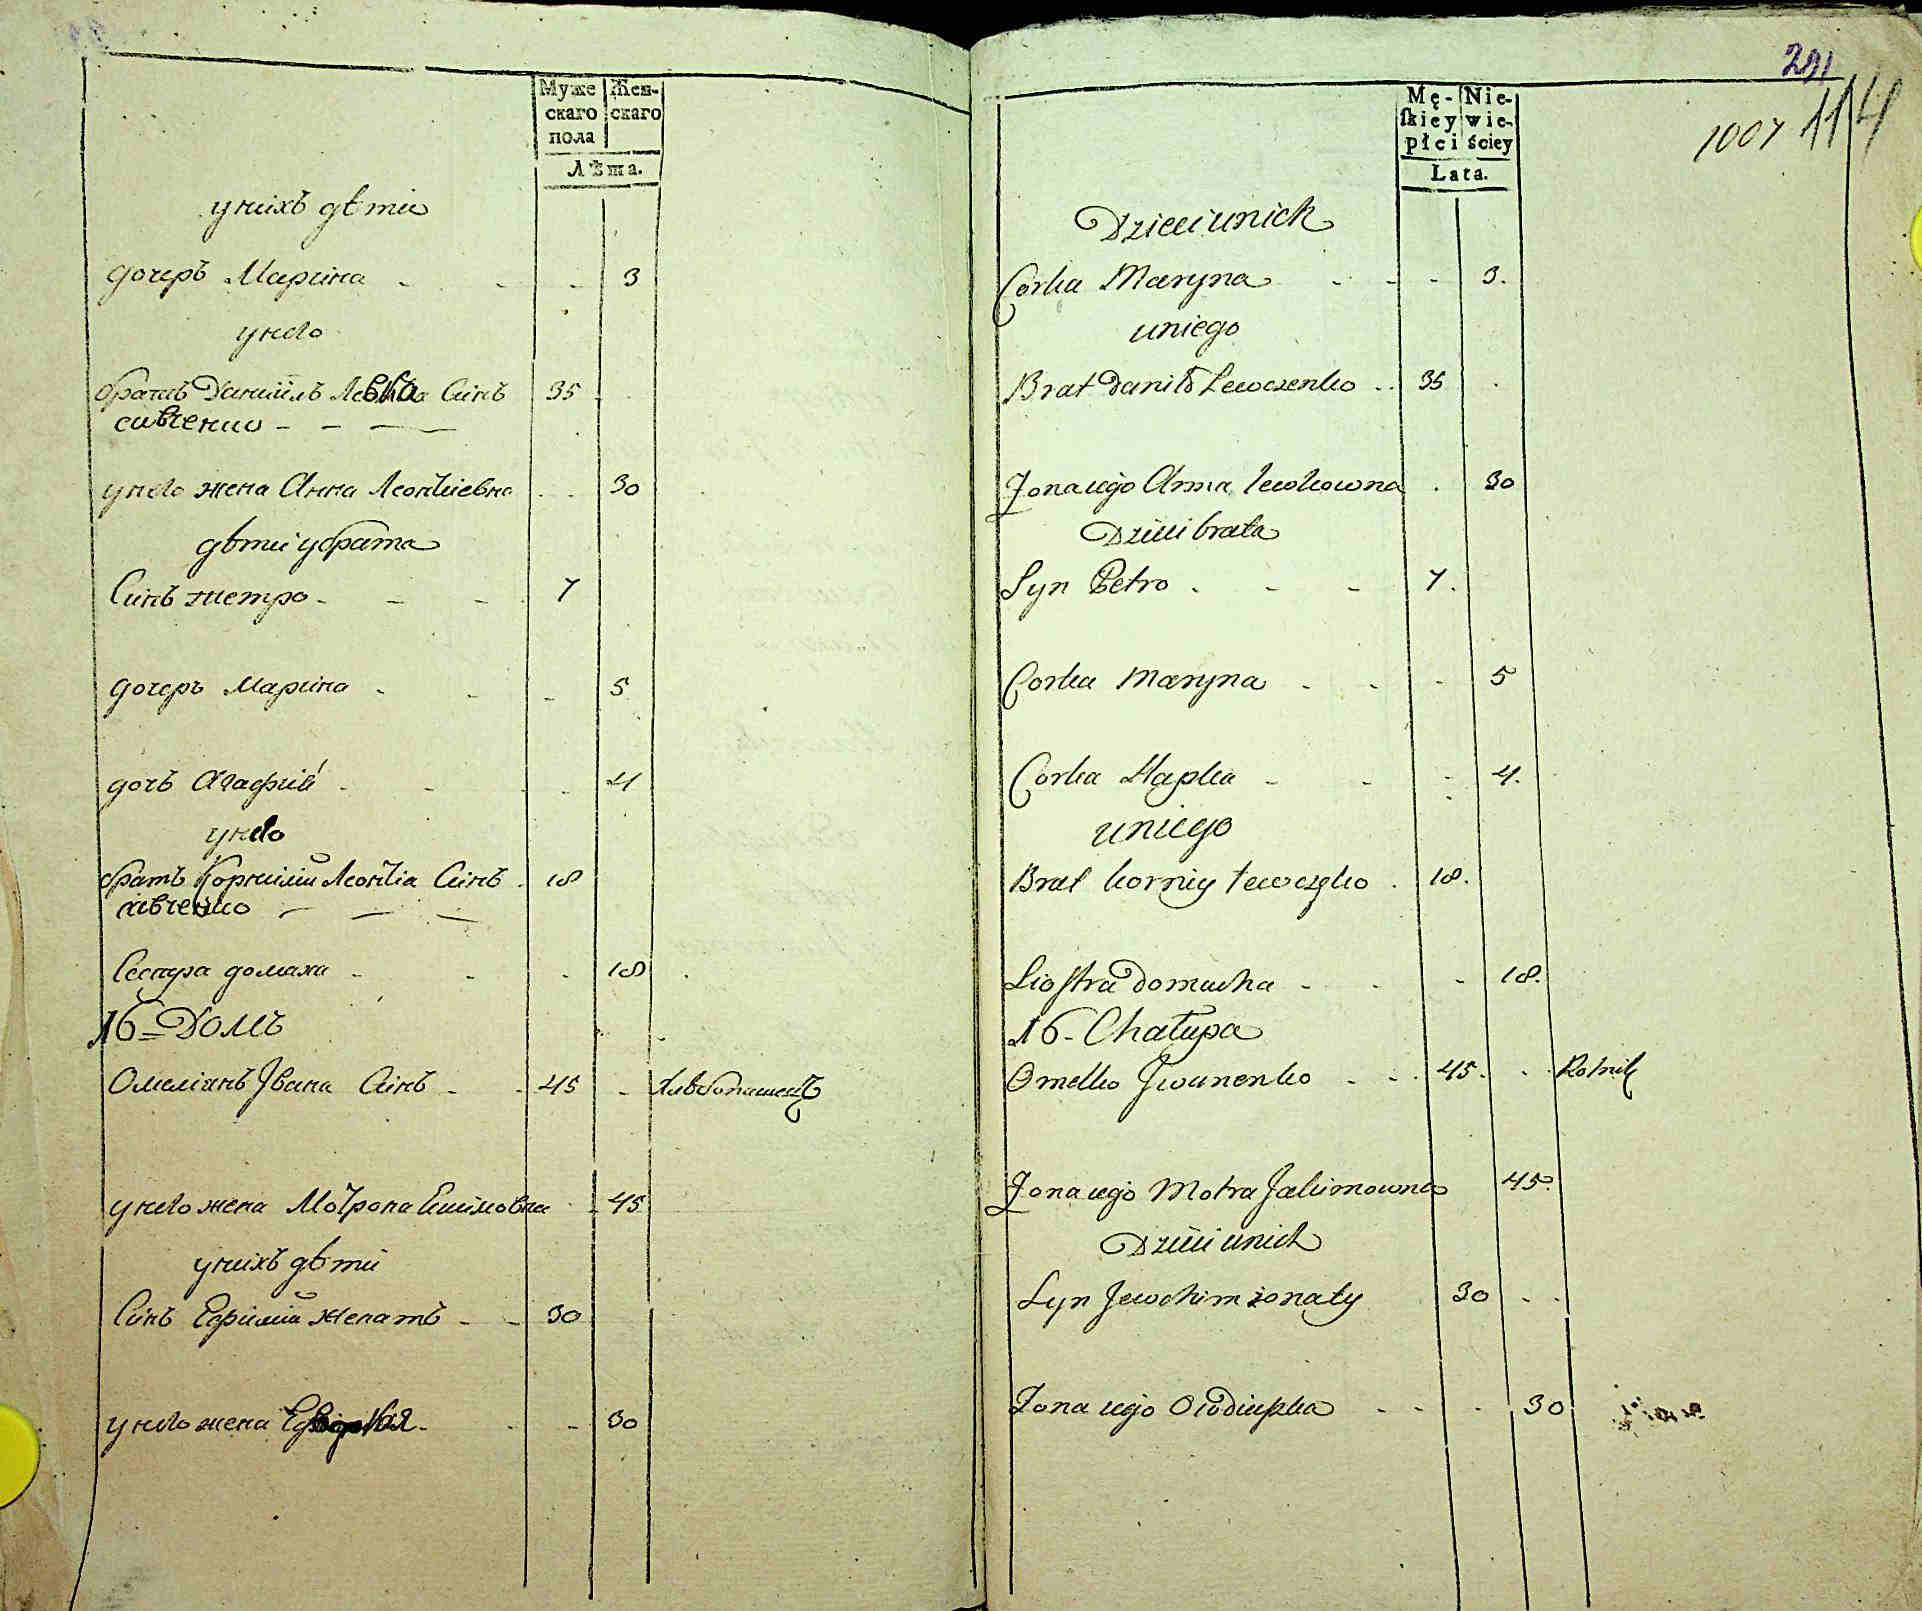 Муже
скаго
пола
Жен-
скаго
Лѣта.
унихъ дѣти
дочеръ Марина - - - 3
унего
братъ Даниилъ Левка Синъ 35
сивченко - - -
унего жена Анна Леонтиевна - - 30
дѣти убрата
Синъ петро - - - 7
дочеръ Марина - - - 5
дочъ Агафия - - - 4
унего
братъ Корнилий Леонтiа Синъ 18
сивченко - - -
Сестра домаха - - - 18
16 = Домъ
Омелiянъ Iвана Синъ - - 45 - Хлебопашецъ
унего жена Мотрона Екимовна - 45
унихъ дѣти
Синъ Ефимий женатъ - - 30
унего жена - - 30
291
1007 114
Mę-
skiey
płci
Nie-
wie-
ściey
Lata.
Dzieci unich
Corka Maryna - - - 3.
uniego
Brat Daniło Lewczenko - - 35
Zona iego Anna Lewkowna . 30
Dzieci brata
Syn Petro - - - 7.
Corka Maryna - - - 5
Corka Hapka - - - 4.
uniego
Brat Korniy Lewczęko . 18.
Siostra Domacha - - - 18.
16 - Chałupa
Omelko Jwanenko - - 45. - Rolnik
Zona iego Motra Jakimowna 45.
Dzieci unich
Syn Jewchim żonaty 30 - -
Zona iego Owdiupka - - - 30